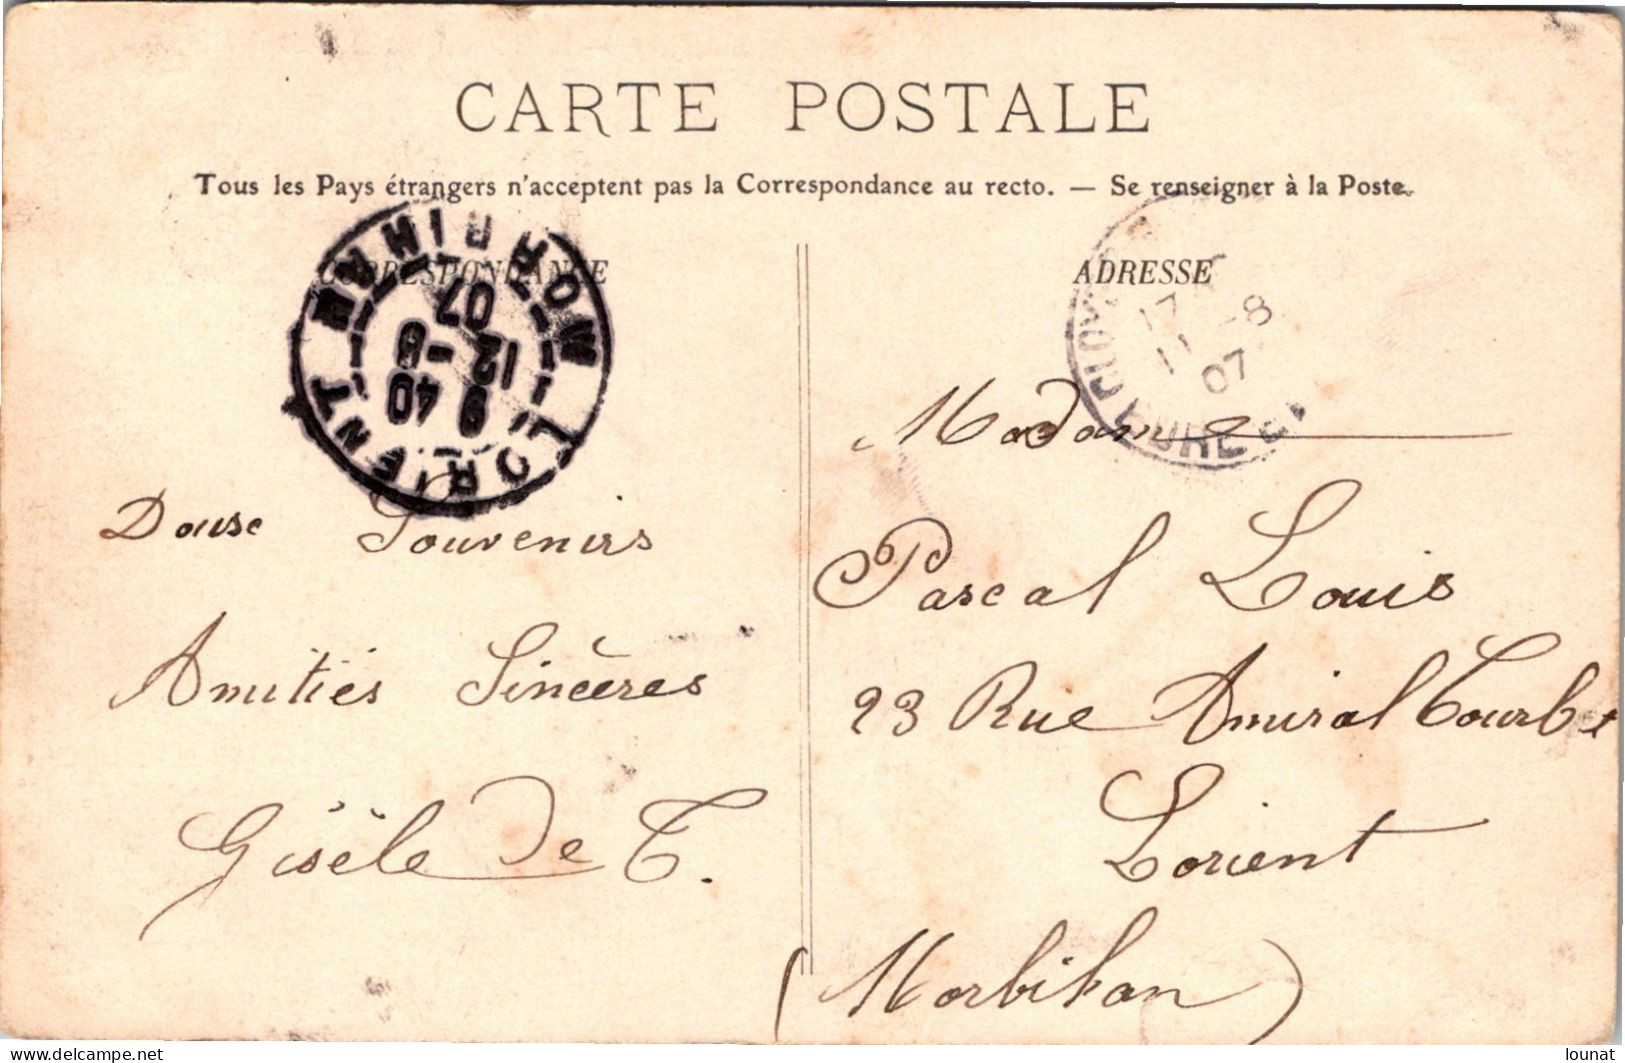 CARTE POSTALE
Tous les Pays étrangers n'acceptent pas la Correspondance au recto. — Se renseigner à la Poste.
CORRESPONDANCE
LORIENT MORBIHAN
9 40
12 -8
07
Douse Souvenirs
Amitiés Sincères
Gisèle de T.
ADRESSE
17
11 -8
07
EURE
Madame
Pascal Louis
23 Rue Amiral Courbet
Lorient
(Morbihan)
delcampe.net
lounat